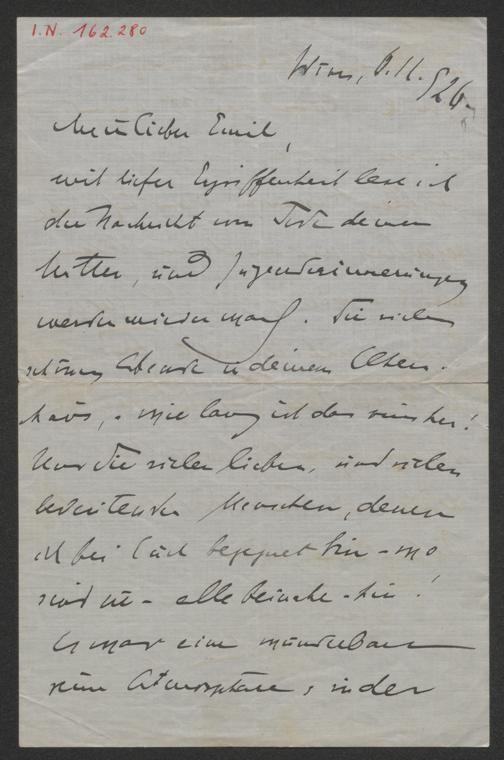 I.N. 162.280
Wien, 6.11.926
Mein lieber Emil,
mit tiefer Ergriffenheit lese ich
die Nachricht vom Tode deiner
Mutter, und Jugenderinnerungen
werden wieder wach. Die vielen
schönen Abende in deinem Eltern-
haus, - wie lang ist das nun her!
Und die vielen lieben, und vielen
bedeutenden Menschen, denen
ich bei Euch begegnet bin - wo
sind sie - alle beinahe - hin!
Es war eine wunderbare
reine Atmosphäre, in der